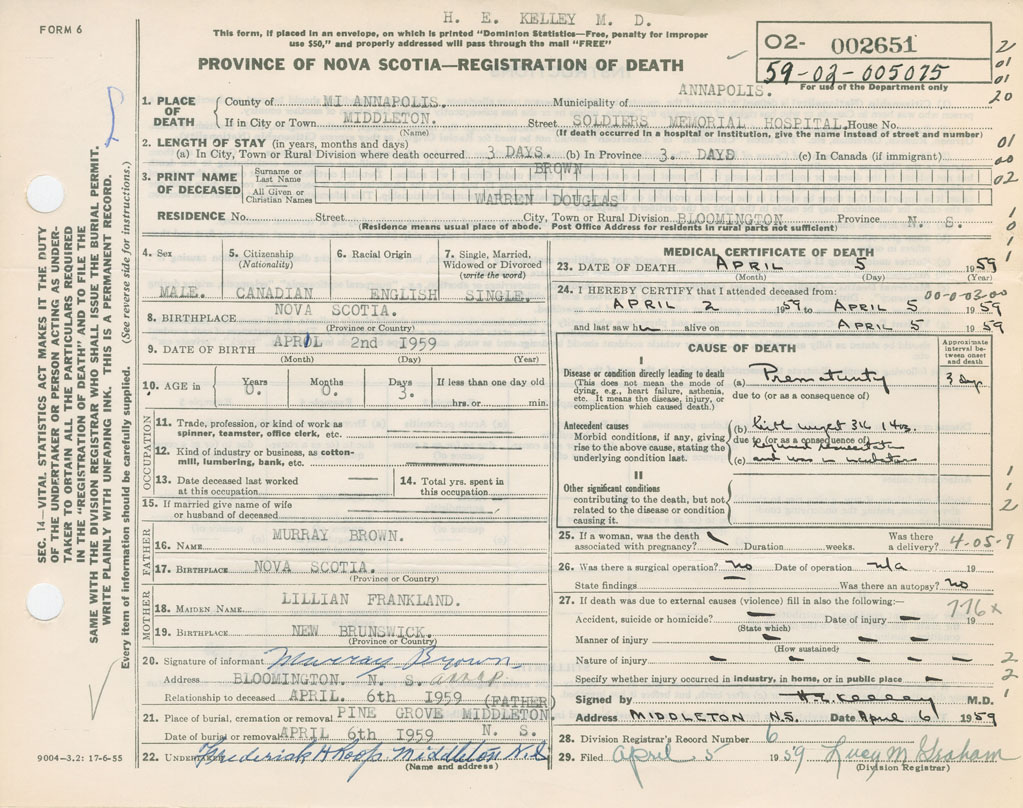 H. E. KELLEY M. D.
FORM 6
This form, if placed in an envelope, on which is printed "Dominion Statistics—Free, penalty for improper
use $50," and properly addressed will pass through the mail "FREE"
02- 002651
59-02-005075
For use of the Department only
PROVINCE OF NOVA SCOTIA—REGISTRATION OF DEATH
2
01
01
20
1. PLACE OF DEATH
County of MI ANNAPOLIS. Municipality of ANNAPOLIS.
If in City or Town MIDDLETON. Street SOLDIERS MEMORIAL HOSPITAL. House No.
(Name) (If death occurred in a hospital or institution, give the name instead of street and number)
2. LENGTH OF STAY (in years, months and days)
(a) In City, Town or Rural Division where death occurred 3 DAYS. (b) In Province 3. DAYS (c) In Canada (if immigrant)
01
00
3. PRINT NAME OF DECEASED
Surname or Last Name BROWN
02
All Given or Christian Names WARREN DOUGLAS
RESIDENCE No. Street City, Town or Rural Division BLOOMINGTON Province N. S.
(Residence means usual place of abode. Post Office Address for residents in rural parts not sufficient)
1
0
1
1
SEC. 14—VITAL STATISTICS ACT MAKES IT THE DUTY
OF THE UNDERTAKER OR PERSON ACTING AS UNDER-
TAKER TO OBTAIN ALL THE PARTICULARS REQUIRED
IN THE "REGISTRATION OF DEATH" AND TO FILE THE
SAME WITH THE DIVISION REGISTRAR WHO SHALL ISSUE THE BURIAL PERMIT.
WRITE PLAINLY WITH UNFADING INK. THIS IS A PERMANENT RECORD.
Every item of information should be carefully supplied. (See reverse side for instructions.)
4. Sex MALE.
5. Citizenship (Nationality) CANADIAN
6. Racial Origin ENGLISH
7. Single, Married, Widowed or Divorced (write the word) SINGLE.
8. BIRTHPLACE NOVA SCOTIA.
(Province or Country)
9. DATE OF BIRTH APRIL 2nd 1959
(Month) (Day) (Year)
10. AGE in Years 0. Months 0. Days 3. If less than one day old
hrs. or min.
OCCUPATION
11. Trade, profession or kind of work as
spinner, teamster, office clerk, etc.
12. Kind of industry or business, as cotton-
mill, lumbering, bank, etc.
13. Date deceased last worked
at this occupation
14. Total yrs. spent in
this occupation
15. If married give name of wife
or husband of deceased
FATHER
16. Name MURRAY BROWN.
17. Birthplace NOVA SCOTIA.
(Province or Country)
MOTHER
18. Maiden Name LILLIAN FRANKLAND.
19. Birthplace NEW BRUNSWICK.
(Province or Country)
20. Signature of informant Murray Brown
Address BLOOMINGTON. N. S. annap.
Relationship to deceased APRIL. 6th 1959 (FATHER)
21. Place of burial, cremation or removal PINE GROVE MIDDLETON.
Date of burial or removal APRIL 6th 1959 N. S.
22. Undertaker Frederick H Roop Middleton N.S
(Name and address)
9004—3.2: 17-6-55
MEDICAL CERTIFICATE OF DEATH
23. DATE OF DEATH APRIL 5 1959
(Month) (Day) (Year)
24. I HEREBY CERTIFY that I attended deceased from: 00-0-03-00
APRIL 2 1959 to APRIL 5 1959
and last saw h alive on APRIL 5 1959
CAUSE OF DEATH
Approximate interval between onset and death
I
Disease or condition directly leading to death
(This does not mean the mode of dying, e.g., heart failure, asthenia, etc. It means the disease, injury, or complication which caused death.)
(a) Prematurity 3 days
due to (or as a consequence of)
Antecedent causes
Morbid conditions, if any, giving rise to the above cause, stating the underlying condition last.
(b) Birth weight 3lb 14oz.
due to (or as a consequence of)
required resuscitation
(c) and was in incubator
II
Other significant conditions
contributing to the death, but not related to the disease or condition causing it.
1
1
2
25. If a woman, was the death
associated with pregnancy? Duration weeks. Was there a delivery? 4-05-9
26. Was there a surgical operation? no Date of operation n/a 19
State findings Was there an autopsy? No
27. If death was due to external causes (violence) fill in also the following:— 776x
Accident, suicide or homicide? Date of injury 19
(State which)
Manner of injury
(How sustained)
Nature of injury
2
Specify whether injury occurred in industry, in home, or in public place
2
1
Signed by H.E. Kelley M.D.
Address MIDDLETON N.S. Date April 6 1959
28. Division Registrar's Record Number 6
29. Filed April 5 1959 Lucy M Graham
(Division Registrar)